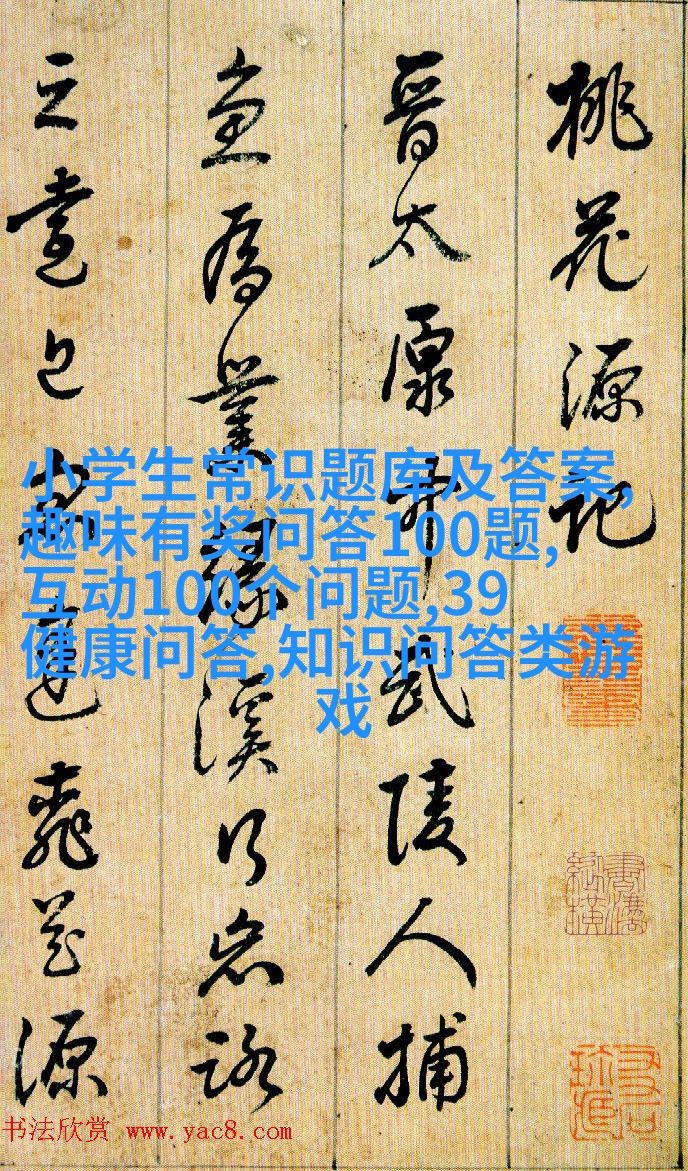 桃花源記
晉太原中武陵人捕
魚為業緣溪行忘路
之遠近忽逢桃花源
小学生常识题库及答案,
趣味有奖问答100题,
互动100个问题,39
健康问答,知识问答类游
戏
书法欣赏 www.yac8.com